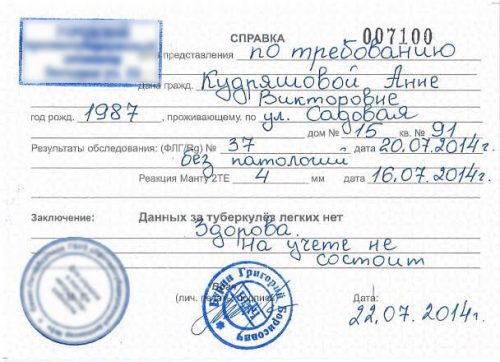 СПРАВКА 007100
представления по требованию
Дана гражд. Кудряшовой Анне
Викторовне
год рожд. 1987, проживающему. по ул. Садовая
дом № 15 кв. № 91
Результаты обследования: (ФЛГ/Rg) № 37 дата 20.07.2014г.
без патологии
Реакция Манту 2ТЕ 4 мм дата 16.07.2014г.
Заключение: Данных за туберкулёз легких нет
Здорова.
На учете не
состоит
Врач
(лич. печать, подпись) Дата:
Григорий Борисович
22.07.2014г.